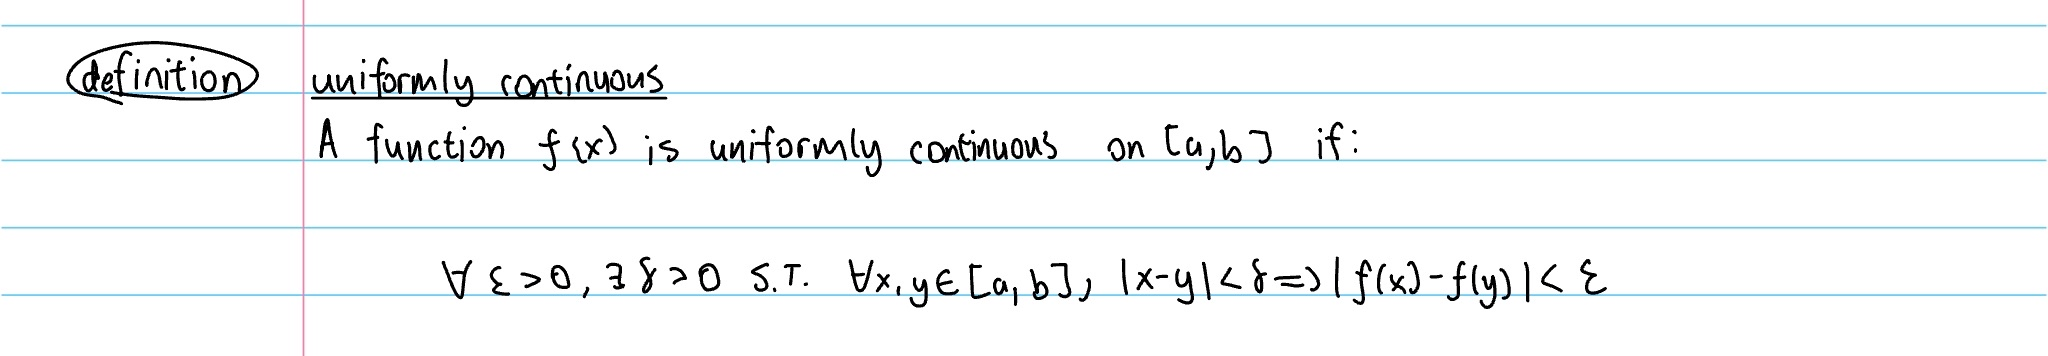 definition uniformly continuous
A function f(x) is uniformly continuous on [a,b] if:
∀ ε>0, ∃ δ>0 S.T. ∀x,y∈[a,b], |x-y|<δ=>|f(x)-f(y)|< ε